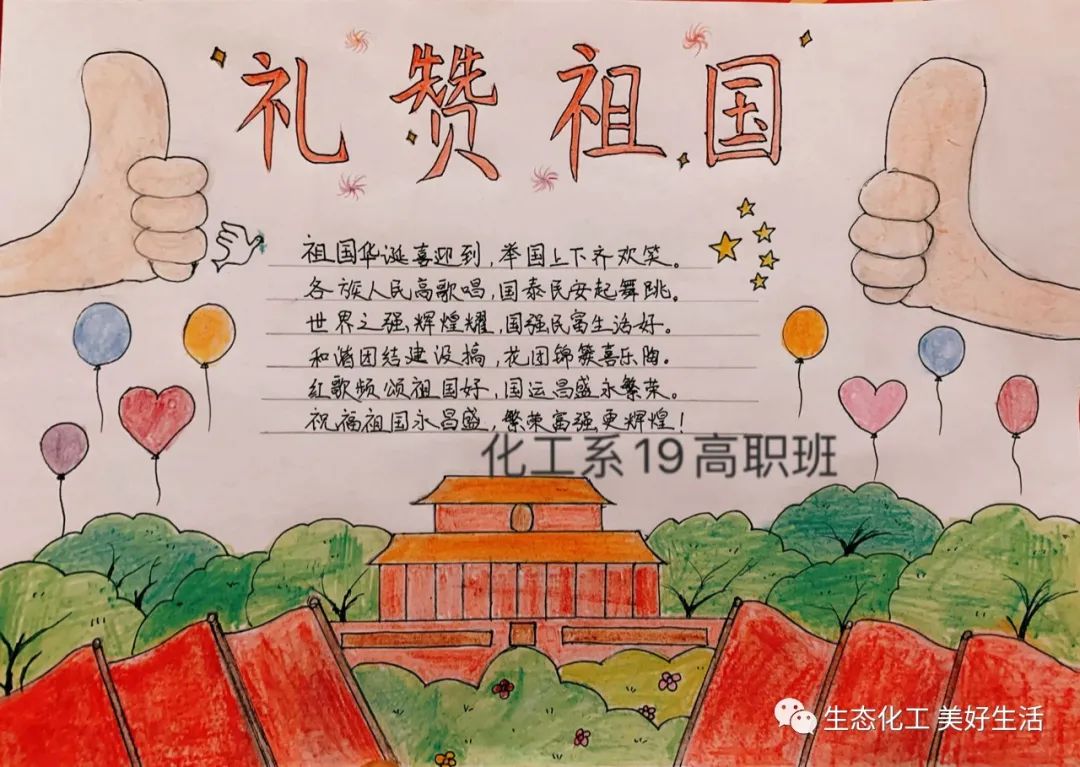 礼赞祖国
祖国华诞喜迎到，举国上下齐欢笑。
各族人民高歌唱，国泰民安起舞跳。
世界之强辉煌耀，国强民富生活好。
和谐团结建设搞，花团锦簇喜乐陶。
红歌频颂祖国好，国运昌盛永繁荣。
祝福祖国永昌盛，繁荣富强更辉煌！
化工系19高职班
生态化工 美好生活